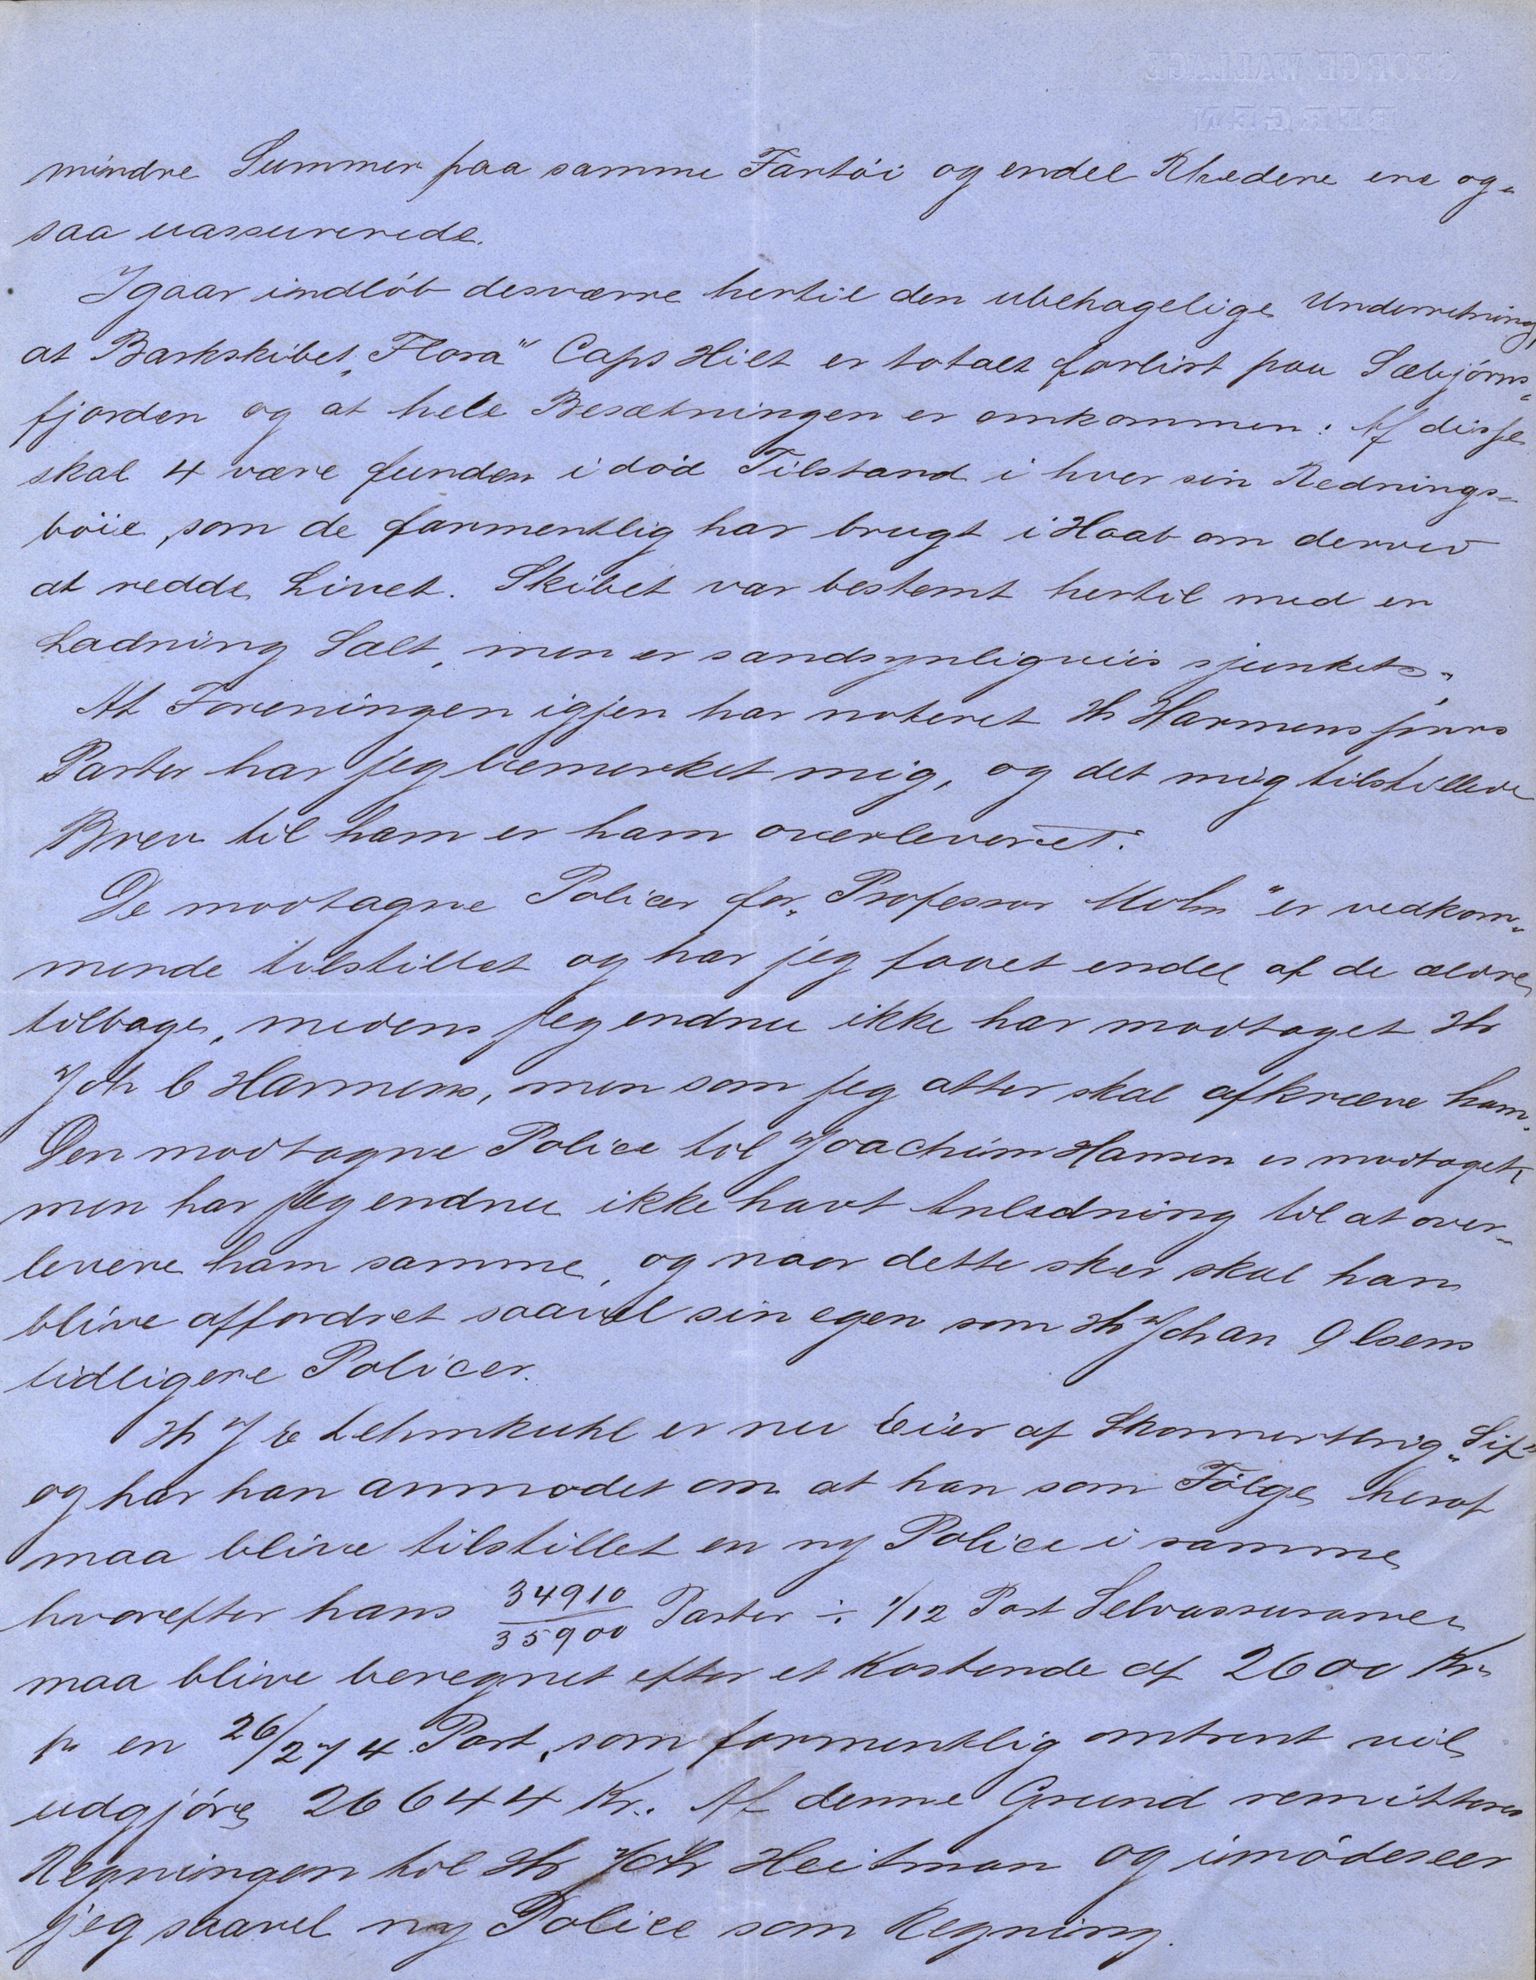 mindre Summer paa samme Fartöi og endel Rhedere ere og-
saa uassurerede.
Igaar indlöb desværre hertil den ubehagelige Underretning,
at Barkskibet „Flora" Capt Hilt er totalt forlist paa Sælbjörns-
fjorden og at hele Besætningen er omkommen. Af disse
skal 4 være funden i död Tilstand i hver sin Rednings-
böie, som de formentlig har brugt i Haab om derved
at redde Livet. Skibet var bestemt hertil med en
Ladning Salt, men er sandsynligviis sjunket.
At Foreningen igjen har noteret Hr Harmens
Parter har jeg bemerket mig, og det mig tilstillede
Brev til ham er ham overleveret.
De modtagne Policer for „Professor Mohn" er vedkom-
mende tilstillet og har jeg faaet endel af de ældre
tilbage, medens jeg endnu ikke har modtaget Hr
Joh C Harmens, men som jeg atter skal afkræve ham.
Den modtagne Police til Joachim Hansen er modtaget,
men har jeg endnu ikke havt Anledning til at over-
levere ham samme, og naar dette sker skal han
blive affordret saavel sin egen som Hr Johan Olsens
tidligere Policer.
Hr J C Lehmkuhl er nu Eier af Skonnertbrig „Sif"
og har han anmodet om at han som Fölge heraf
maa blive tilstillet en ny Police i samme
hvorefter hans 34910/35900 Parter ÷ 1/12 Part Selvassurance
maa blive beregnet efter et Kostende af 2600 Kr
pr en 26/274 Part, som formentlig omtrent vil
udgjöre 26644 Kr. Af denne Grund remitteres
Regningen til Hr Joh Heitman og imödeseer
jeg saavel ny Police som Regning.
GEORGE WALLACE
BERGEN